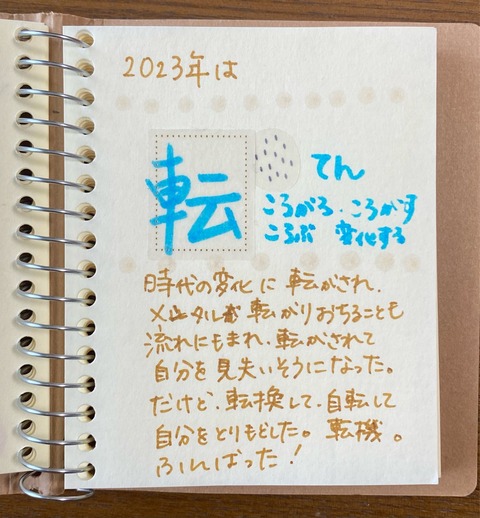 2023年は
転
てん
ころがる・ころがす
ころぶ 変化する
時代の変化に 転がされ、
メンタルも 転がりおちることも
流れにもまれ、転がされて
自分を見失いそうになった。
だけど、転換して、自転して
自分をとりもどした。転機。
ふんばった!